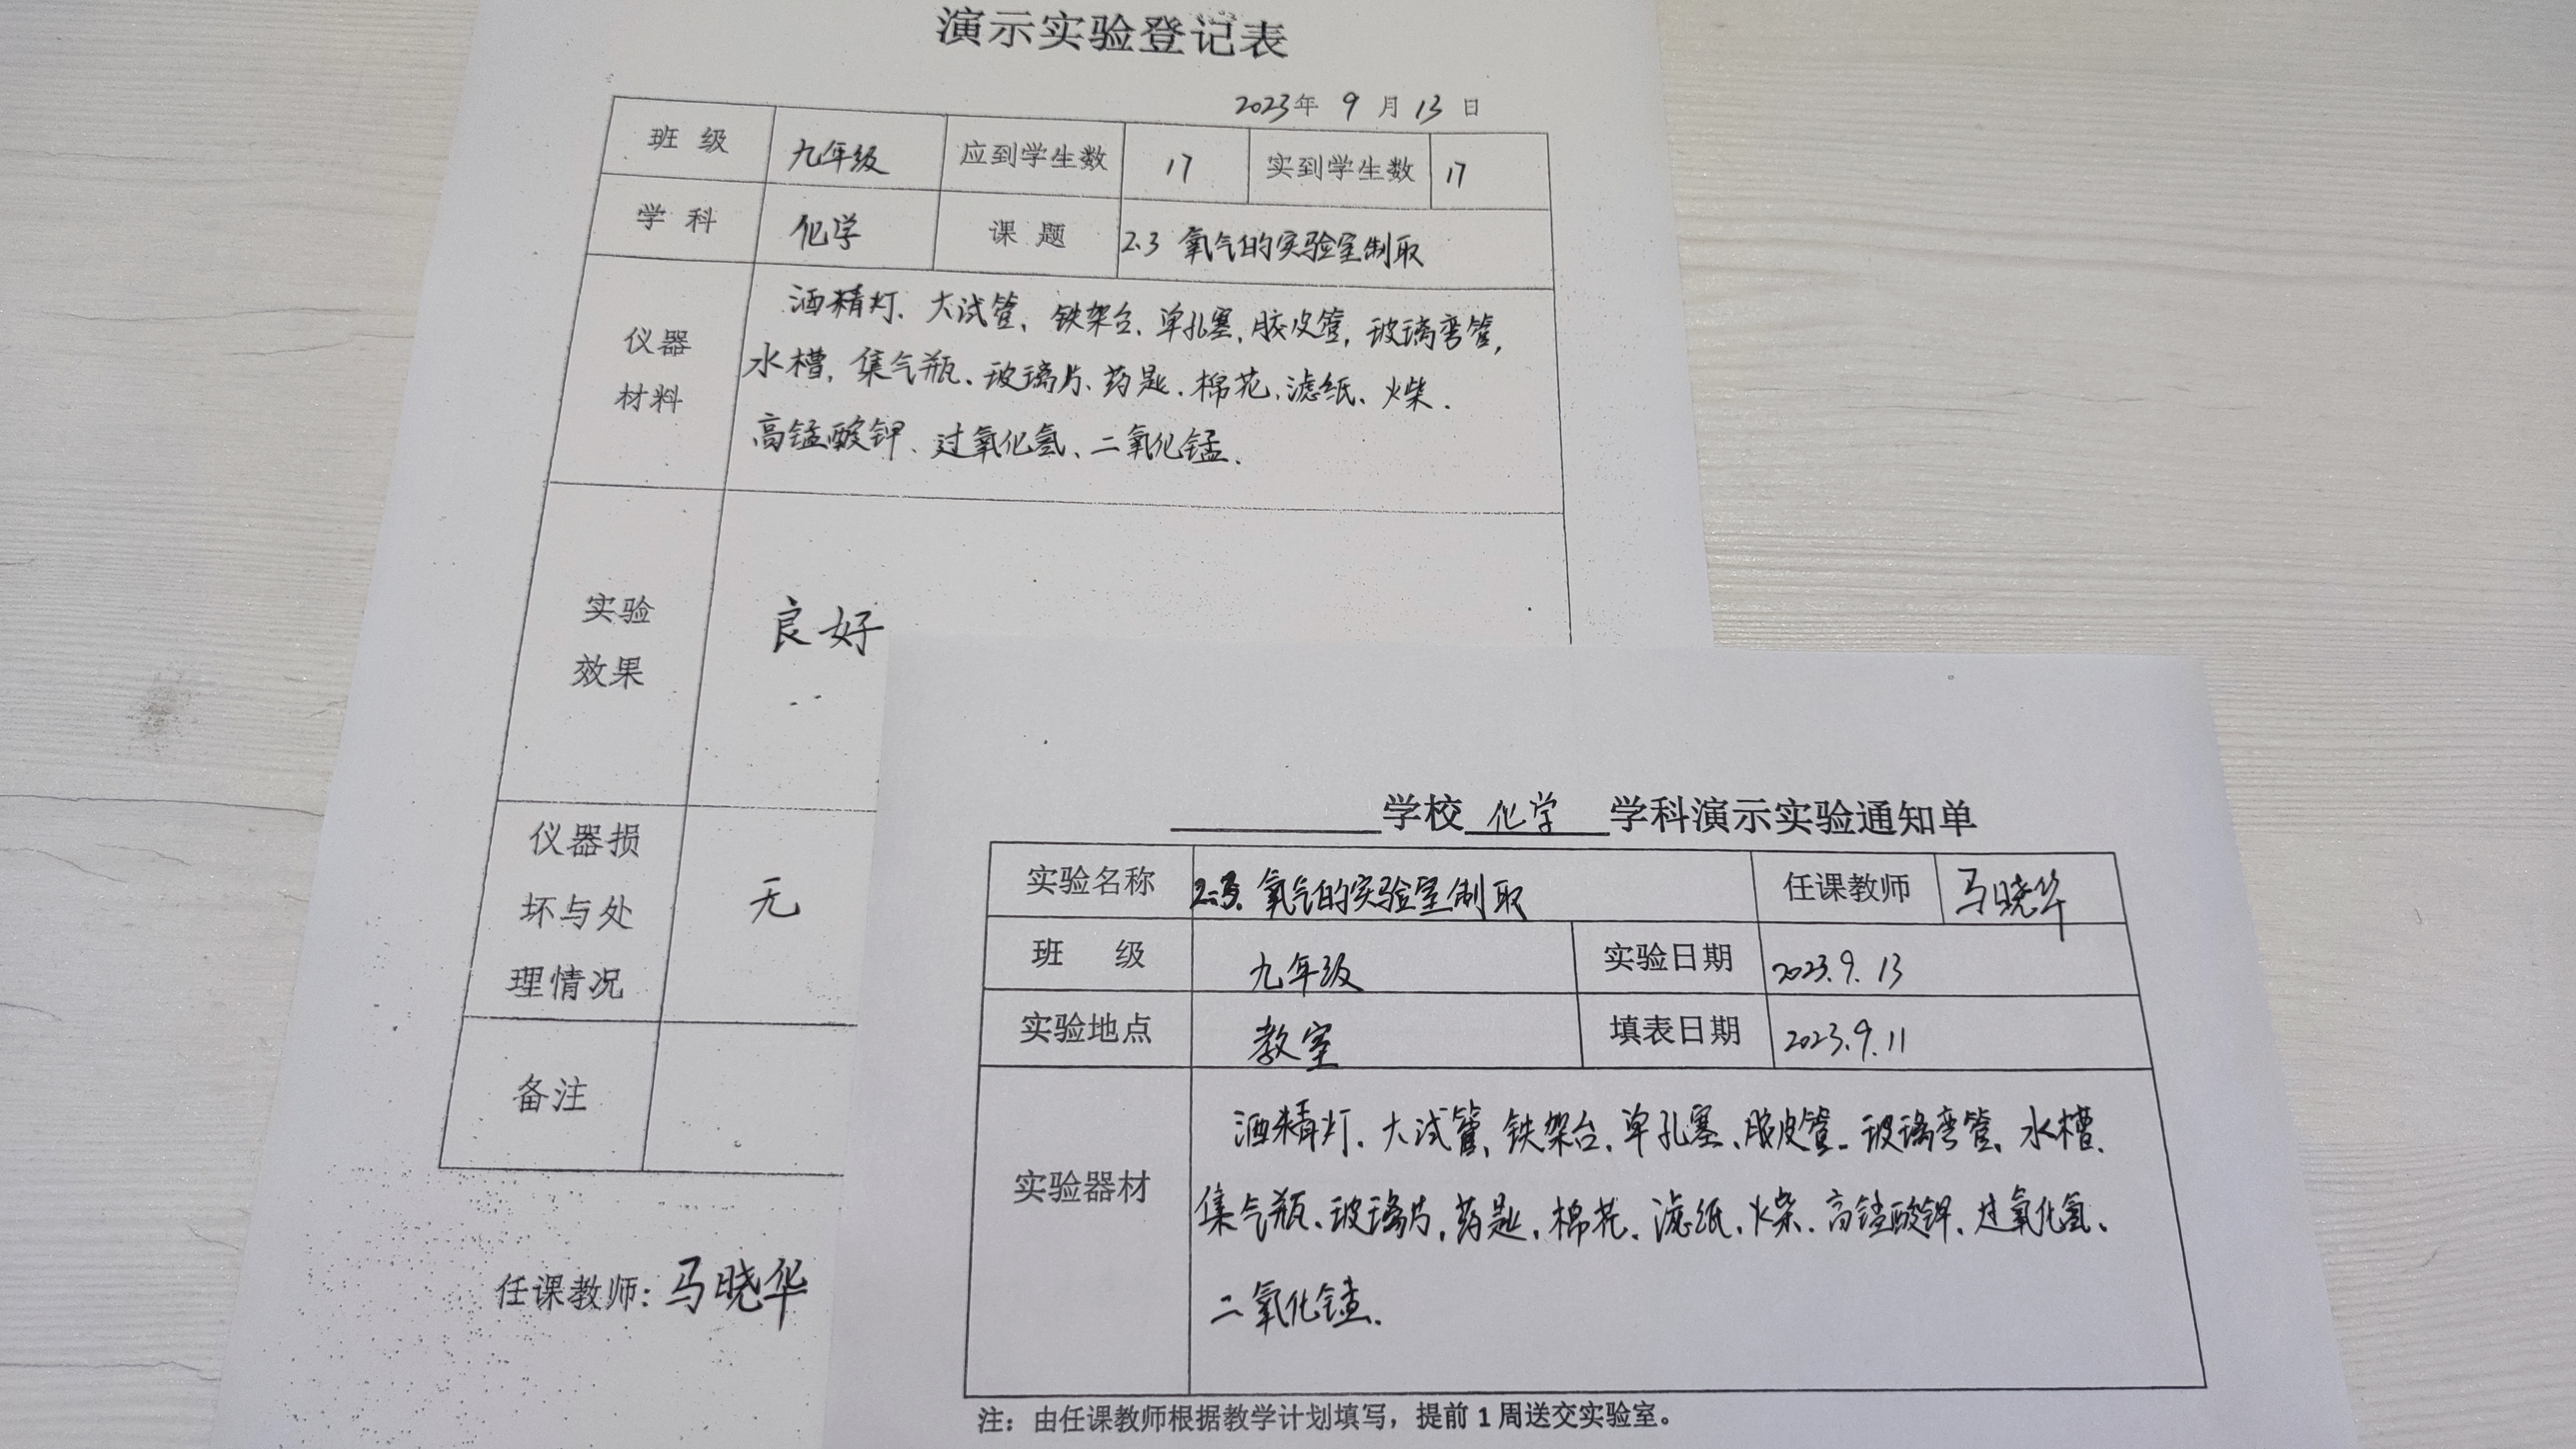 演示实验登记表
2023年 9 月 13 日
班 级 九年级 应到学生数 17 实到学生数 17
学 科 化学 课 题 2.3 氧气的实验室制取
仪器
材料
酒精灯、大试管、铁架台、单孔塞,胶皮管,玻璃弯管,
水槽、集气瓶、玻璃片、药匙、棉花、滤纸、火柴.
高锰酸钾、过氧化氢、二氧化锰.
实验
效果
良好
仪器损
坏与处
理情况
无
备注
任课教师: 马晓华
学校 化学 学科演示实验通知单
实验名称 2.3. 氧气的实验室制取 任课教师 马晓华
班 级 九年级 实验日期 2023.9.13
实验地点 教室 填表日期 2023.9.11
实验器材
酒精灯、大试管、铁架台、单孔塞、胶皮管、玻璃弯管、水槽、
集气瓶、玻璃片、药匙、棉花、滤纸、火柴、高锰酸钾、过氧化氢、
二氧化锰.
注：由任课教师根据教学计划填写，提前 1 周送交实验室。